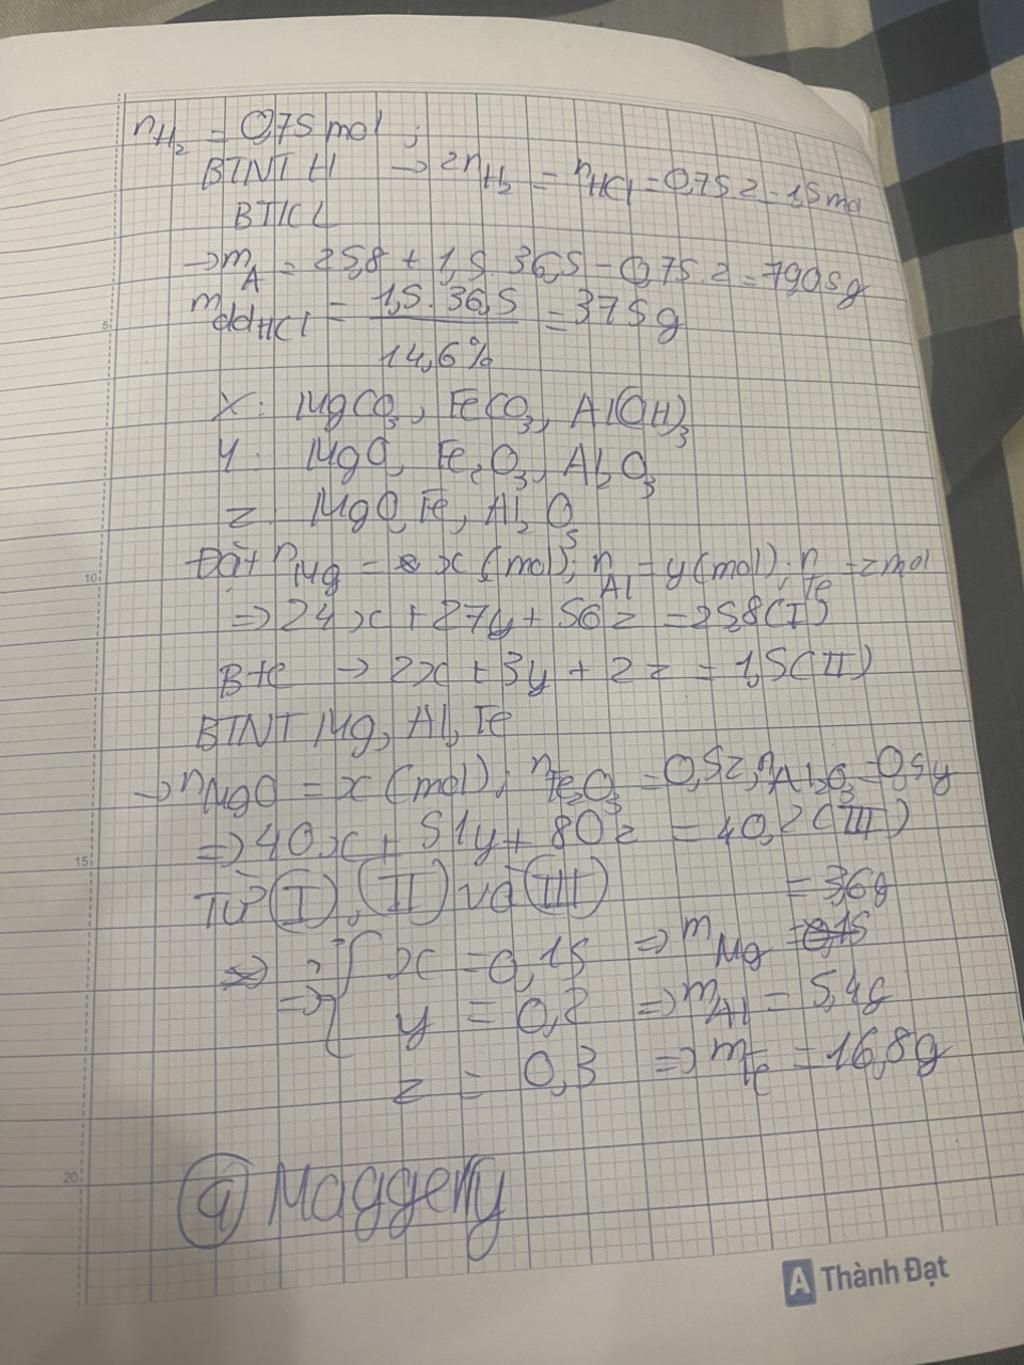 nH₂ = 0,75 mol ;
BTNT H → 2nH₂ = nHCl = 0,75.2 = 1,5 mol
BTKL
→ mA = 25,8 + 1,5.36,5 - 0,75.2 = 79,05g
mddHCl = 1,5.36,5 / 14,6% = 375g
X: MgCO₃, FeCO₃, Al(OH)₃
Y: MgO, Fe₂O₃, Al₂O₃
Z: MgO, Fe, Al₂O₃
Đặt nMg = x (mol); nAl = y (mol); nFe = z mol
=> 24x + 27y + 56z = 25,8 (I)
Bte → 2x + 3y + 2z = 1,5 (II)
BTNT Mg, Al, Fe
→ nMgO = x (mol); nFe₂O₃ = 0,5z, nAl₂O₃ = 0,5y
=> 40x + 51y + 80z = 40,2 (III)
Từ (I), (II) và (III)
=> { x = 0,15 => mMg = 3,6g
y = 0,2 => mAl = 5,4g
z = 0,3 => mFe = 16,8g
@Maggerry
5
10
15
20
A Thành Đạt